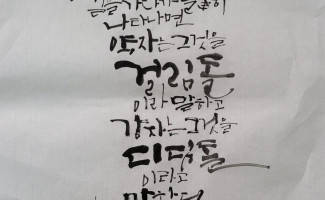 나타나면
약자는 그것을
걸림돌
이라 말하고
강자는 그것을
디딤돌
이라고
말한다